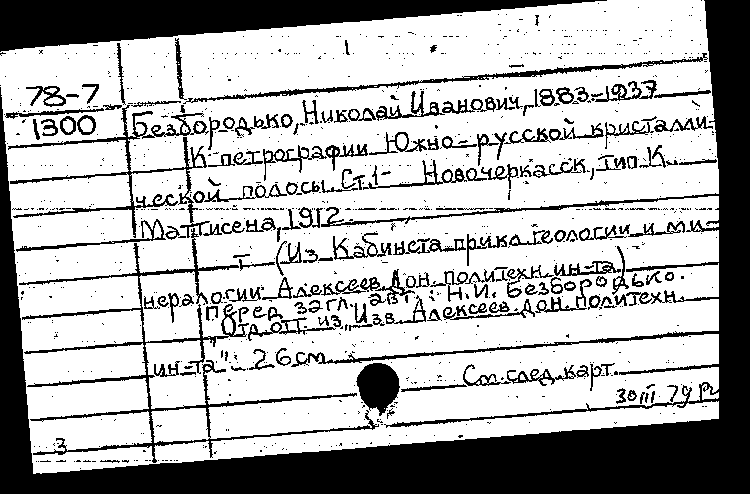 78-7
1300 Безбородько, Николай Иванович, 1883-1937
К петрографии Южно-русской кристалли-
ческой полосы. Ст.1- Новочеркасск, тип. К.
Маттисена, 1912.
т. (Из Кабинета прикл. геологии и ми-
нералогии Алексеев. Дон. политехн. ин-та)
Перед загл. авт.: Н.И. Безбородько.
"Отд. отт. из "Изв. Алексеев. Дон. политехн.
ин-та". 26 см.
См. след. карт.
30 III 79
3